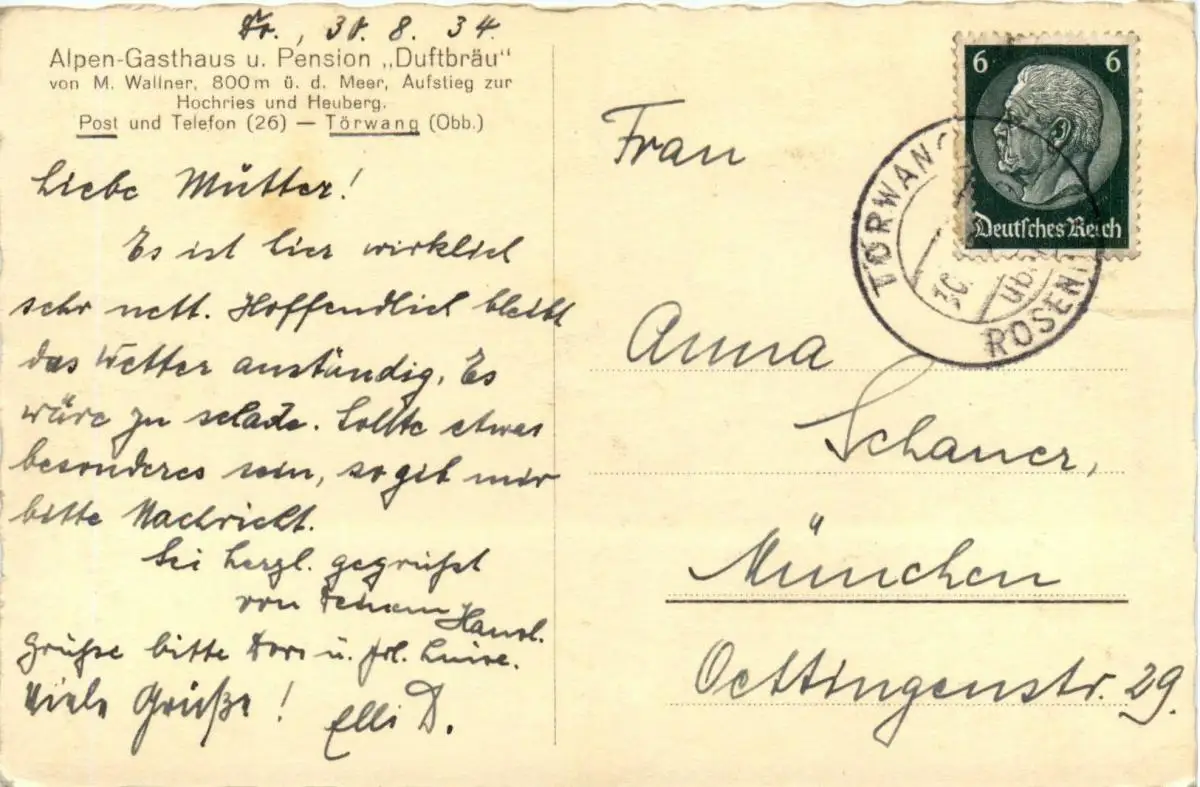 Do., 30. 8. 34.
Alpen-Gasthaus u. Pension „Duftbräu"
von M. Wallner, 800 m ü. d. Meer, Aufstieg zur
Hochries und Heuberg.
Post und Telefon (26) — Törwang (Obb.)
Liebe Mutter!
Es ist hier wirklich
sehr nett. Hoffendlich bleibt
das Wetter anständig. Es
wäre zu schade. Sollte etwas
besonderes sein, so gib mir
bitte Nachricht.
Sei herzl. gegrüßt
von Deinem Hansl.
Grüße bitte u. Frl. Luise.
Viele Grüße! Elli D.
6 6
Deutsches Reich
TÖRWANG
30.
üb.
ROSENH
Frau
Anna
Schauer,
München
Oettingenstr. 29.